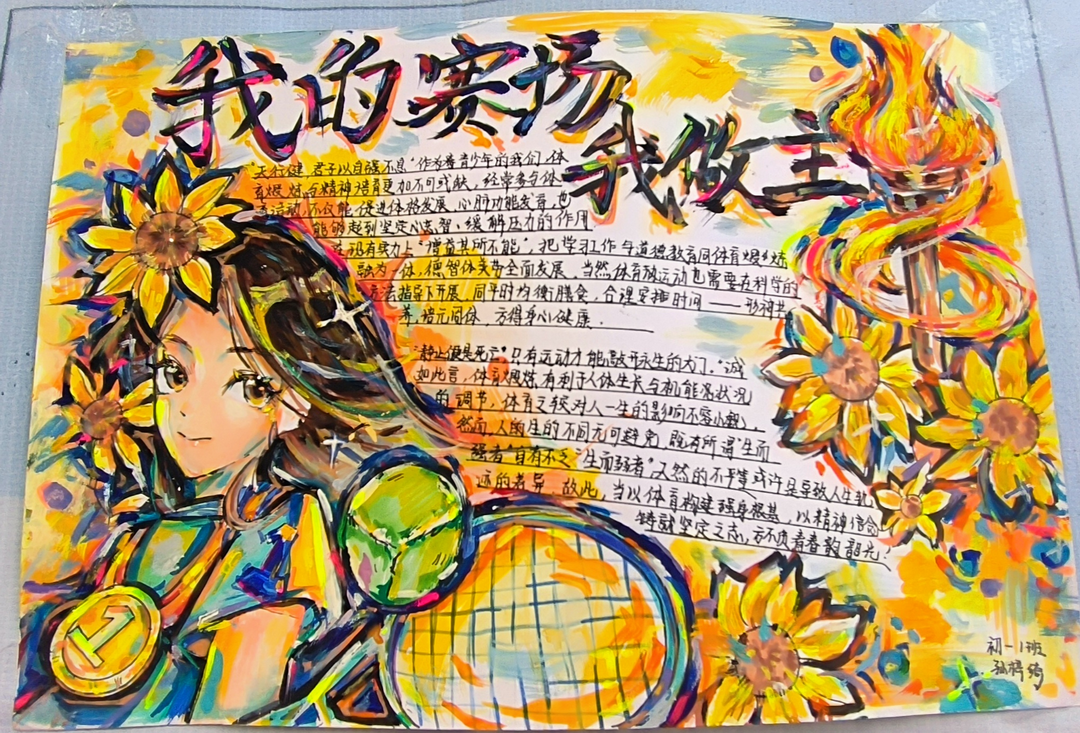 我的赛场
我做主
“天行健,君子以自强不息”作为青少年的我们,体
育煅炼与精神培育更加不可或缺,经常参与体
育运动,不仅能促进体格发展,心肺功能发育,也
能够起到坚定心志智、缓解压力的作用
在现有实力上“增益其所不能”,把学习工作与道德教育同体育煅炼
融为一体,德智体美劳全面发展。当然体育放运动也需要在科学的
方法指导下开展,同平时均衡膳食,合理安排时间——形神共
养,培元固体,方得身心健康。
“静止便是死亡”只有运动才能敲开永生的大门。”诚
如此言,体育煅炼有利于人体生长与机能状况
的调节,体育之较对人一生的影响不容小觑。
然而,人的生的不同无可避免,既有所谓“生而
强者”自有不乏“生而弱者”天然的不平等或许是导致人生轨
迹的差异,故此,当以体育构建强身根基,以精神信念
铸就坚定之志,方不负青春韶光!
初一1班
孙梓绮
1